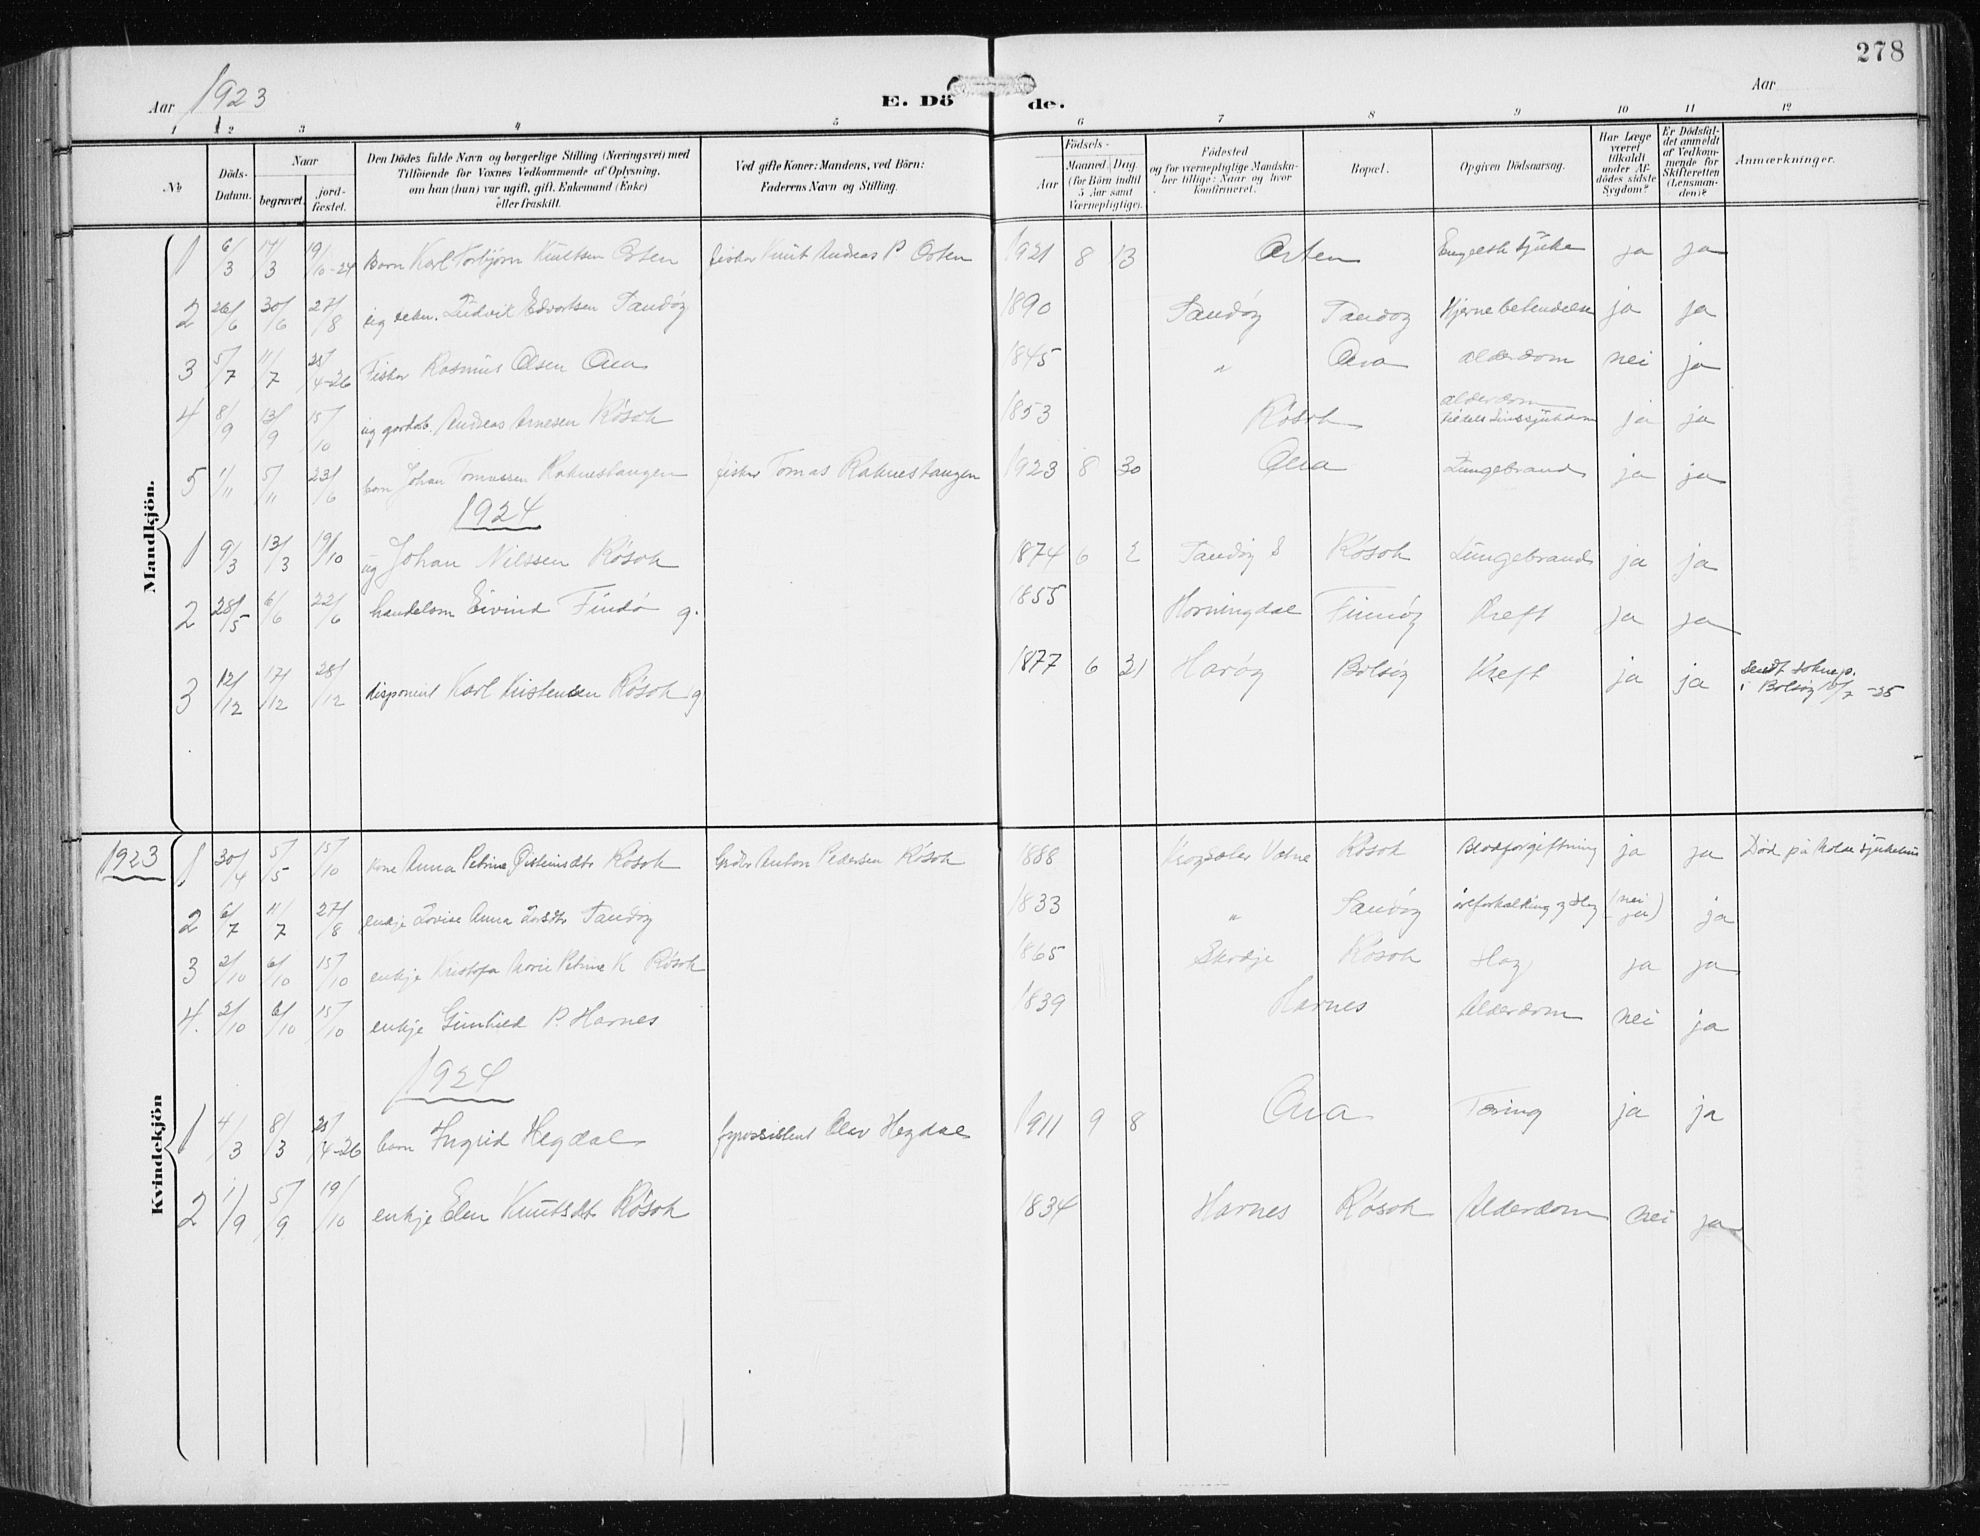 278
Aar 1923
E. Dö de.
Aar
1 2 3 4 5 6 7 8 9 10 11 12
No
Döds-Datum.
Naar
begravet.
jord-fæstet.
Den Dödes fulde Navn og borgerlige Stilling (Næringsvei) med
Tilföiende for Voxnes Vedkommende af Oplysning,
om han (hun) var ugift, gift, Enkemand (Enke)
eller fraskilt.
Ved gifte Koner: Mandens, ved Börn:
Faderens Navn og Stilling.
Födsels-
Aar
Maaned. Dag.
(for Börn indtil
5 Aar samt
Værnepligtige).
Födested
og for værnepligtige Mandska-
ber tillige: Naar og hvor
konfirmeret.
Bopæl.
Opgiven Dödsaarsag.
Har Læge
været
tilkaldt
under Af-
dödes sidste
Sygdom?
Er Dödsfal-
det anmeldt
af Vedkom-
mende for
Skifteretten
(Lensman-
den)?
Anmærkninger.
Mandkjön.
1 6/3 17/3 19/10-24 Barn Karl Torbjørn Knutsen Orten fisker Knut Andreas P. Orten 1921 8 13 Orten Engelsk sjuke ja ja
2 26/6 30/6 27/8 Ludvik Edvartsen Sandøy 1890 Sandøy Sandøy Hjernebetendelse ja ja
3 5/7 11/7 25/4-26 Fisker Rasmus Olsen Ona 1845 " Ona alderdom nei ja
4 8/9 13/9 15/10 ug gardb. Andreas Arnesen Røsok 1853 Røsok alderdom ja ja
5 1/11 5/11 23/6 barn Johan Tomassen Raknestangen fisker Tomas Raknestangen 1923 8 30 Ona Lungebrand ja ja
1924
1 9/3 13/3 19/10 ug Johan Nilssen Røsok 1874 6 2 Sandøy S Røsok Lungebrand ja ja
2 28/5 6/6 22/6 handelsm Eivind Findø g. 1855 Horningdal Finnøy Kreft ja ja
3 12/12 17/12 28/12 disponent Karl Kristensen Røsok g 1877 6 21 Harøy Bolsøy Kreft ja ja sendt soknep.
i Bolsøy /7 -25
Kvindekjön
1923
1 30/4 5/5 15/10 kone Anna Petrine Østeinsdtr Røsok Anton Pedersen Røsok 1888 Vatne Røsok Blodforgiftning ja ja Død på Molde sjukehus
2 6/7 11/7 27/8 enkje Lovise Anna Larsdtr Sandøy 1833 " Sandøy åreforkalkning og slag (nei ja) ja
3 2/10 6/10 15/10 enkje Kristofa Marie Petrine K Røsok 1865 Skodje Røsok Slag ja ja
4. 2/10 6/10 15/10 enkje Gunhild P. Harnes 1839 Harnes Alderdom nei ja
1924
1 4/3 8/3 25/4-26 barn Ingrid Hegdal fyrassistent Olav Hegdal 1911 9 8 Ona Tæring ja ja
2 1/9 5/9 19/10 enkje Elen Knutsdtr Røsok 1834 Harnes Røsok Alderdom nei ja